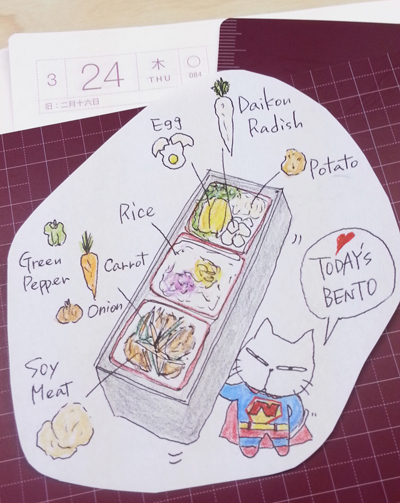 3
24
木
THU
084
旧:二月十六日
Egg
Daikon
Radish
Potato
Rice
Green
Pepper
Carrot
Onion
Soy
Meat
TODAY'S
BENTO
N